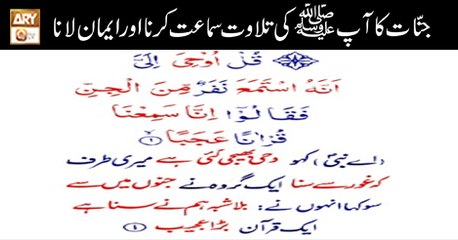 ARY
Qtv
جنّات کا آپ ﷺ کی تلاوت سماعت کرنا اور ایمان لانا
قُلْ اُوْحِیَ اِلَیَّ
اَنَّهُ اسْتَمَعَ نَفَرٌ مِّنَ الْجِنِّ
فَقَالُوْۤا اِنَّا سَمِعْنَا
قُرْاٰنًا عَجَبًا ۙ﴿۱﴾
(اے نبیؐ) کہو وحی بھیجی گئی ہے میری طرف
کہ غور سے سنا ایک گروہ نے جنوں میں سے
سو کہا انہوں نے: بلاشبہ ہم نے سنا ہے
ایک قرآن بڑا عجیب ﴿۱﴾